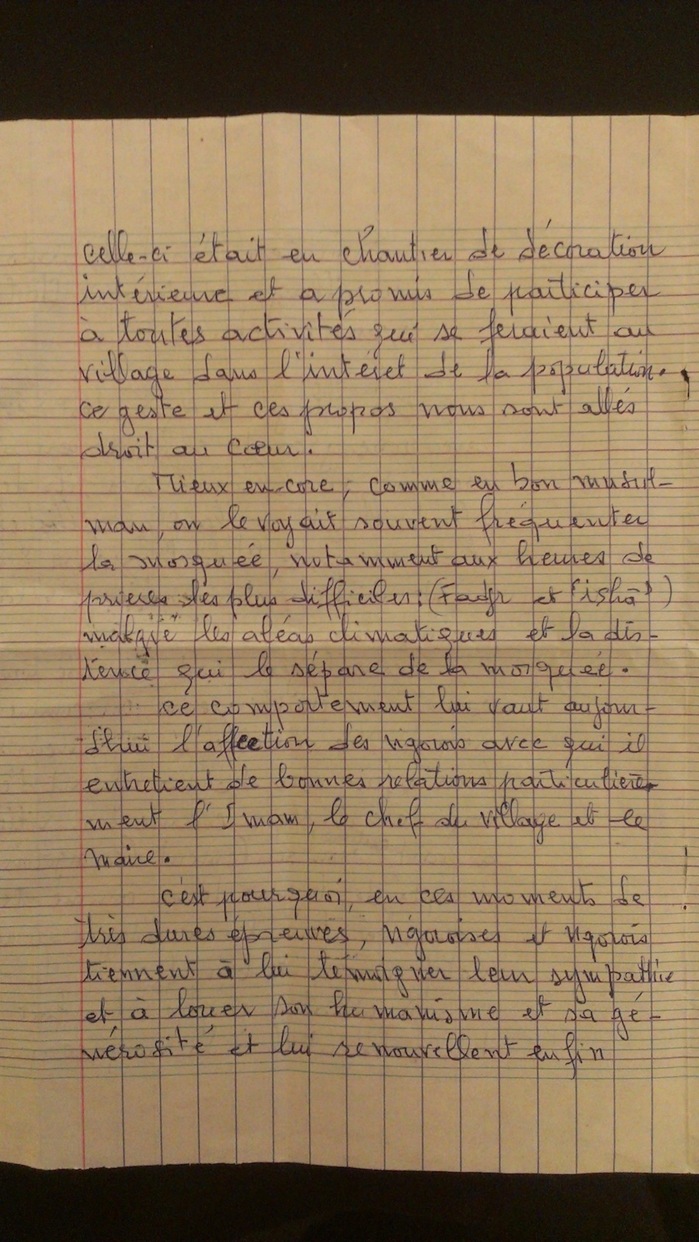 celle-ci était en chantier de décoration
intérieure et a promis de participer
à toutes activités qui se feraient au
village dans l'intérêt de la population.
ce geste et ces propos nous sont allés
droit au cœur.
Mieux en-core, comme en bon musul-
man, on le voyait souvent fréquenter
la mosquée, notamment aux heures de
prières les plus difficiles: (Fadjr et 'ishā')
malgré les aléas climatiques et la dis-
tence qui le sépare de la mosquée.
ce comportement lui vaut aujour-
d'hui l'affection des ngorois avec qui il
entretient de bonnes relations particulière-
ment l'Imam, le chef du village et le
maire.
c'est pourquoi, en ces moments de
très dures épreuves, ngoroises et ngorois
tiennent à lui témoigner leur sympathie
et à louer son humanisme et sa gé-
nérosité et lui renouvellent enfin